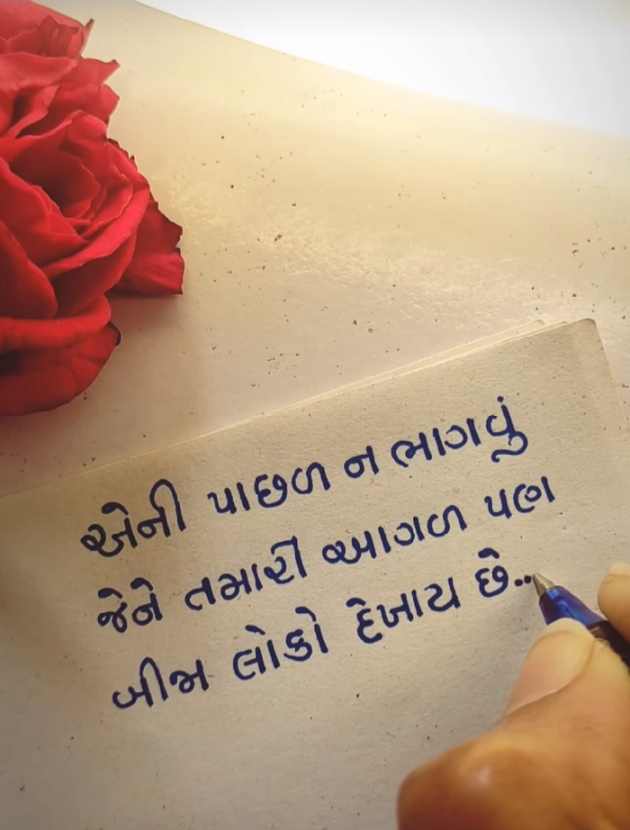 એની પાછળ ન ભાગવું
જેને તમારી આગળ પણ
બીજા લોકો દેખાય છે..